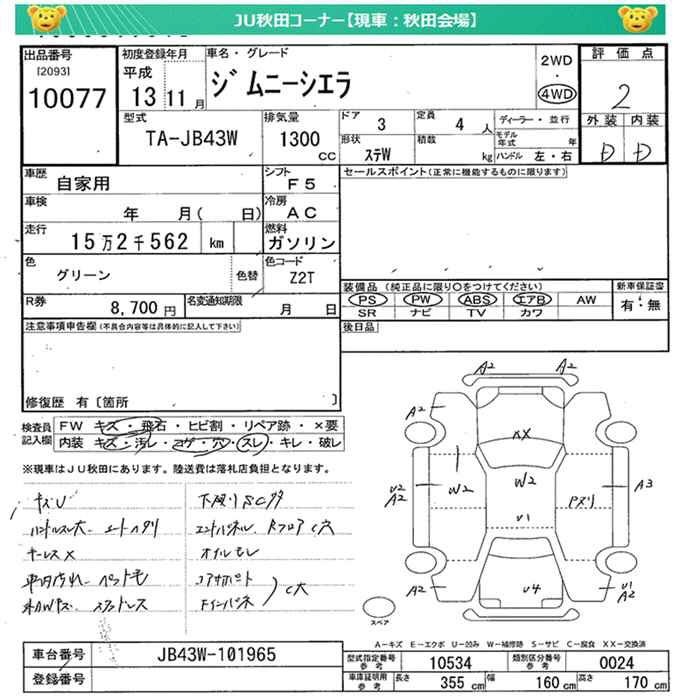 JU秋田コーナー【現車：秋田会場】
出品番号
[2093]
10077
初度登録年月
平成
13 11 月
車名・グレード
ジムニーシエラ
2WD
:
4WD
評価点
2
外装 内装
D D
型式
TA-JB43W
排気量
1300
cc
ドア 3
定員 4 人
形状 ステW
積載 kg
ディーラー・並行
モデル年式 年
ハンドル 左・右
車歴
自家用
シフト
F5
セールスポイント(正常に機能するものに限ります)
車検
年 月( 日)
冷房
AC
走行
15万2千562 km
燃料
ガソリン
色
グリーン
色替
色コード
Z2T
装備品 (純正品に限り○をつけてください)
PS PW ABS エアB AW
SR ナビ TV カワ
新車保証書
有・無
R券
8,700 円
名変通知期限
月 日
後日品
注意事項申告欄(不具合内容等は具体的に記入して下さい)
修復歴 有〔箇所 〕
検査員記入欄
FW キズ・飛石・ヒビ割・リペア跡・×要
内装 キズ・汚レ・コゲ・穴・スレ・キレ・破レ
※現車はJU秋田にあります。陸送費は落札店負担となります。
キズU
下廻りSC多
ハンドルスレ大 シートヘタリ
エンドパネル、Rフロアc穴
キーレス×
オイルモレ
コアサポート
Fインパネ
c大
A2 A2
A2 A2
XX
W2 W2
U2
A2
Pズリ
A3
U1
A2
U4
U1
A2
スペア
A－キズ E－エクボ U－凹み W－補修跡 S－サビ C－腐食 XX－交換済
車台番号 JB43W-101965
登録番号
型式指定番号参考 10534
類別区分番号参考 0024
車庫証明用参考 長さ 355 cm 幅 160 cm 高さ 170 cm